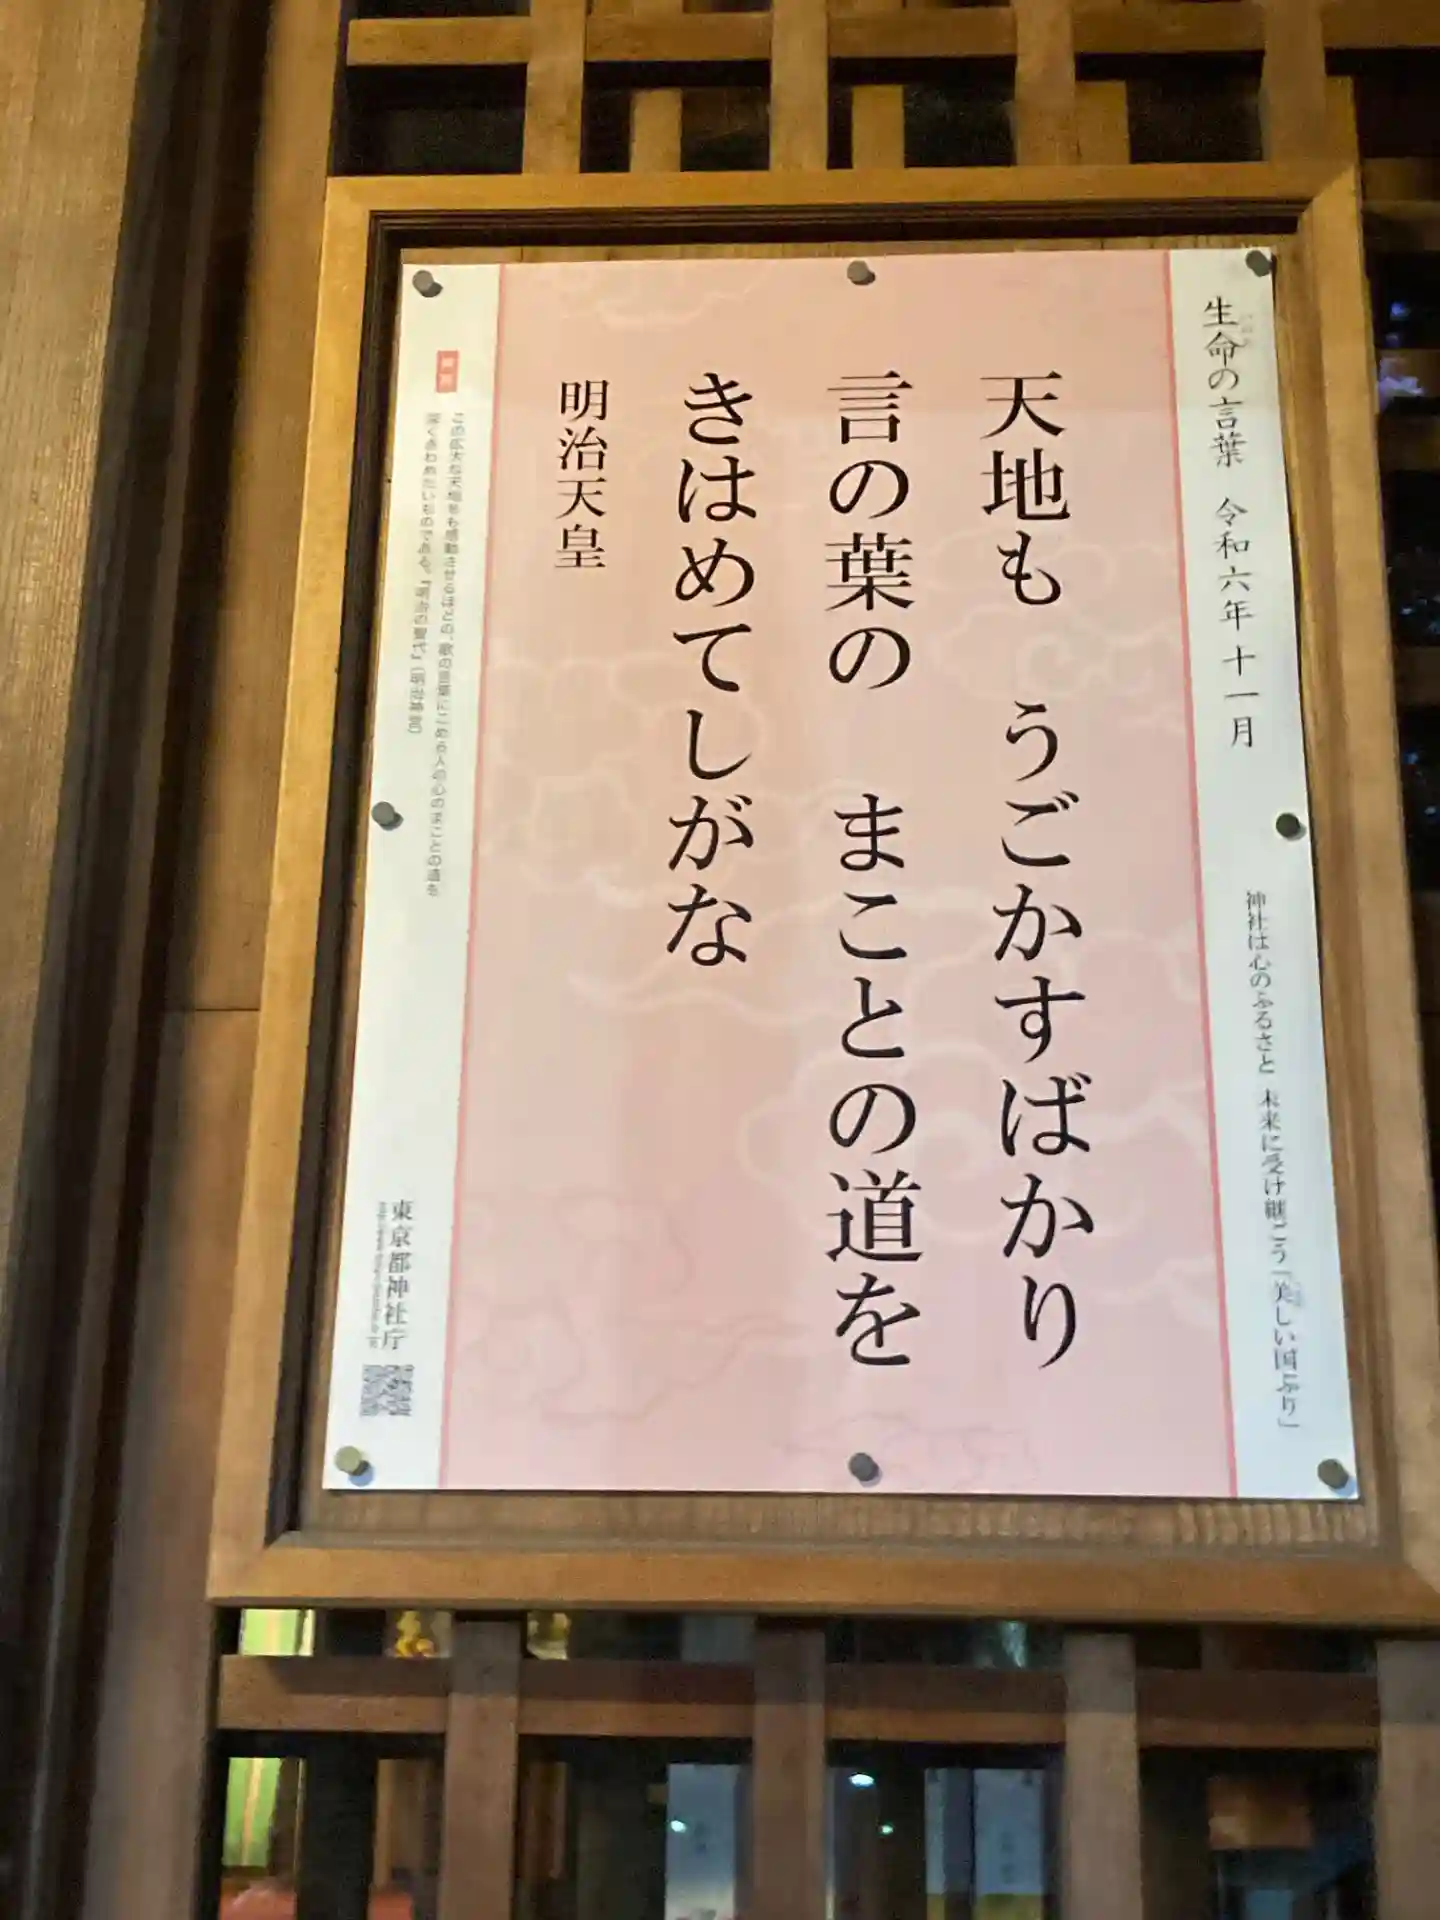 生命の言葉 令和六年十一月
神社は心のふるさと 未来に受け継ごう「美しい国ぶり」
天地も うごかすばかり
言の葉の まことの道を
きはめてしがな
明治天皇
この広大な天地をも感動させるほどの、歌の言葉にこめる人の心のまことの道を
深くきわめたいものである。『明治の聖代』（明治神宮）
東京都神社庁